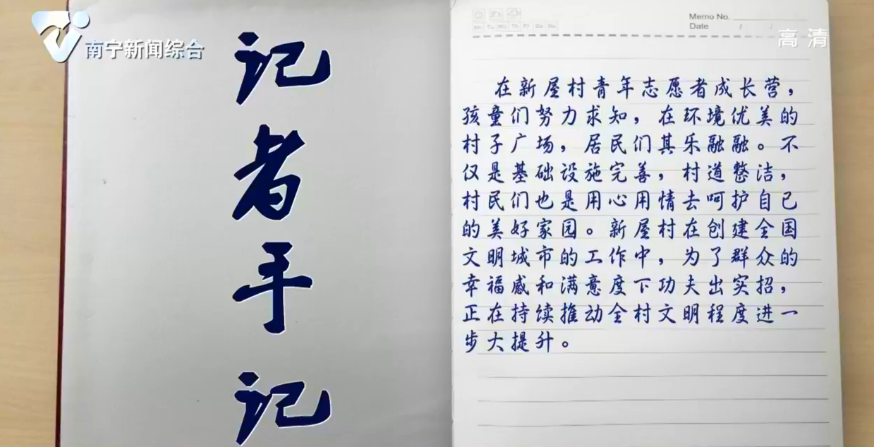 南宁新闻综合
高清
记者手记
Memo No.
Date / /
在新屋村青年志愿者成长营，
孩童们努力求知，在环境优美的
村子广场，居民们其乐融融。不
仅是基础设施完善，村道整洁，
村民们也是用心用情去呵护自己
的美好家园。新屋村在创建全国
文明城市的工作中，为了群众的
幸福感和满意度下功夫出实招，
正在持续推动全村文明程度进一
步大提升。